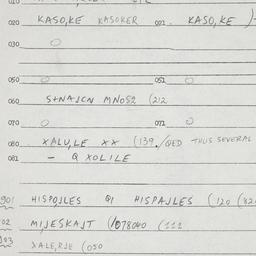 020 KASO,KE KASOKER 021. KASO,KE
030 O
050 O 051 O
060 S+NAJCN MNOS2 (212
070 O 071 O
080 XALU,LE XX (139./QED THUS SEVERAL
081 - Q XOLILE
901 HISPQJLES QI HISPAJLES (120
02 MIJESKAJT (1078040 (111
903 XALE,RJE (050